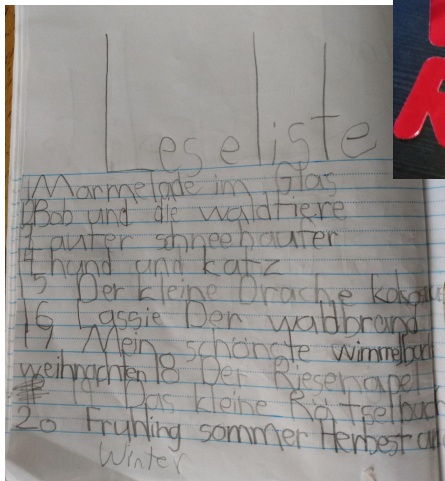 Leseliste
Marmelade im Glas
Bob und die waldtiere
Lauter schneehaufer
14 hund und katz
15 Der kleine Drache
16 Lassie Den waldbrand
17 Mein schönste wimmelbuch
weihnachten 18 Der Riesenapfel
19 Das kleine Rätselbuch
20 Fruhling sommer Herbest und
Winter